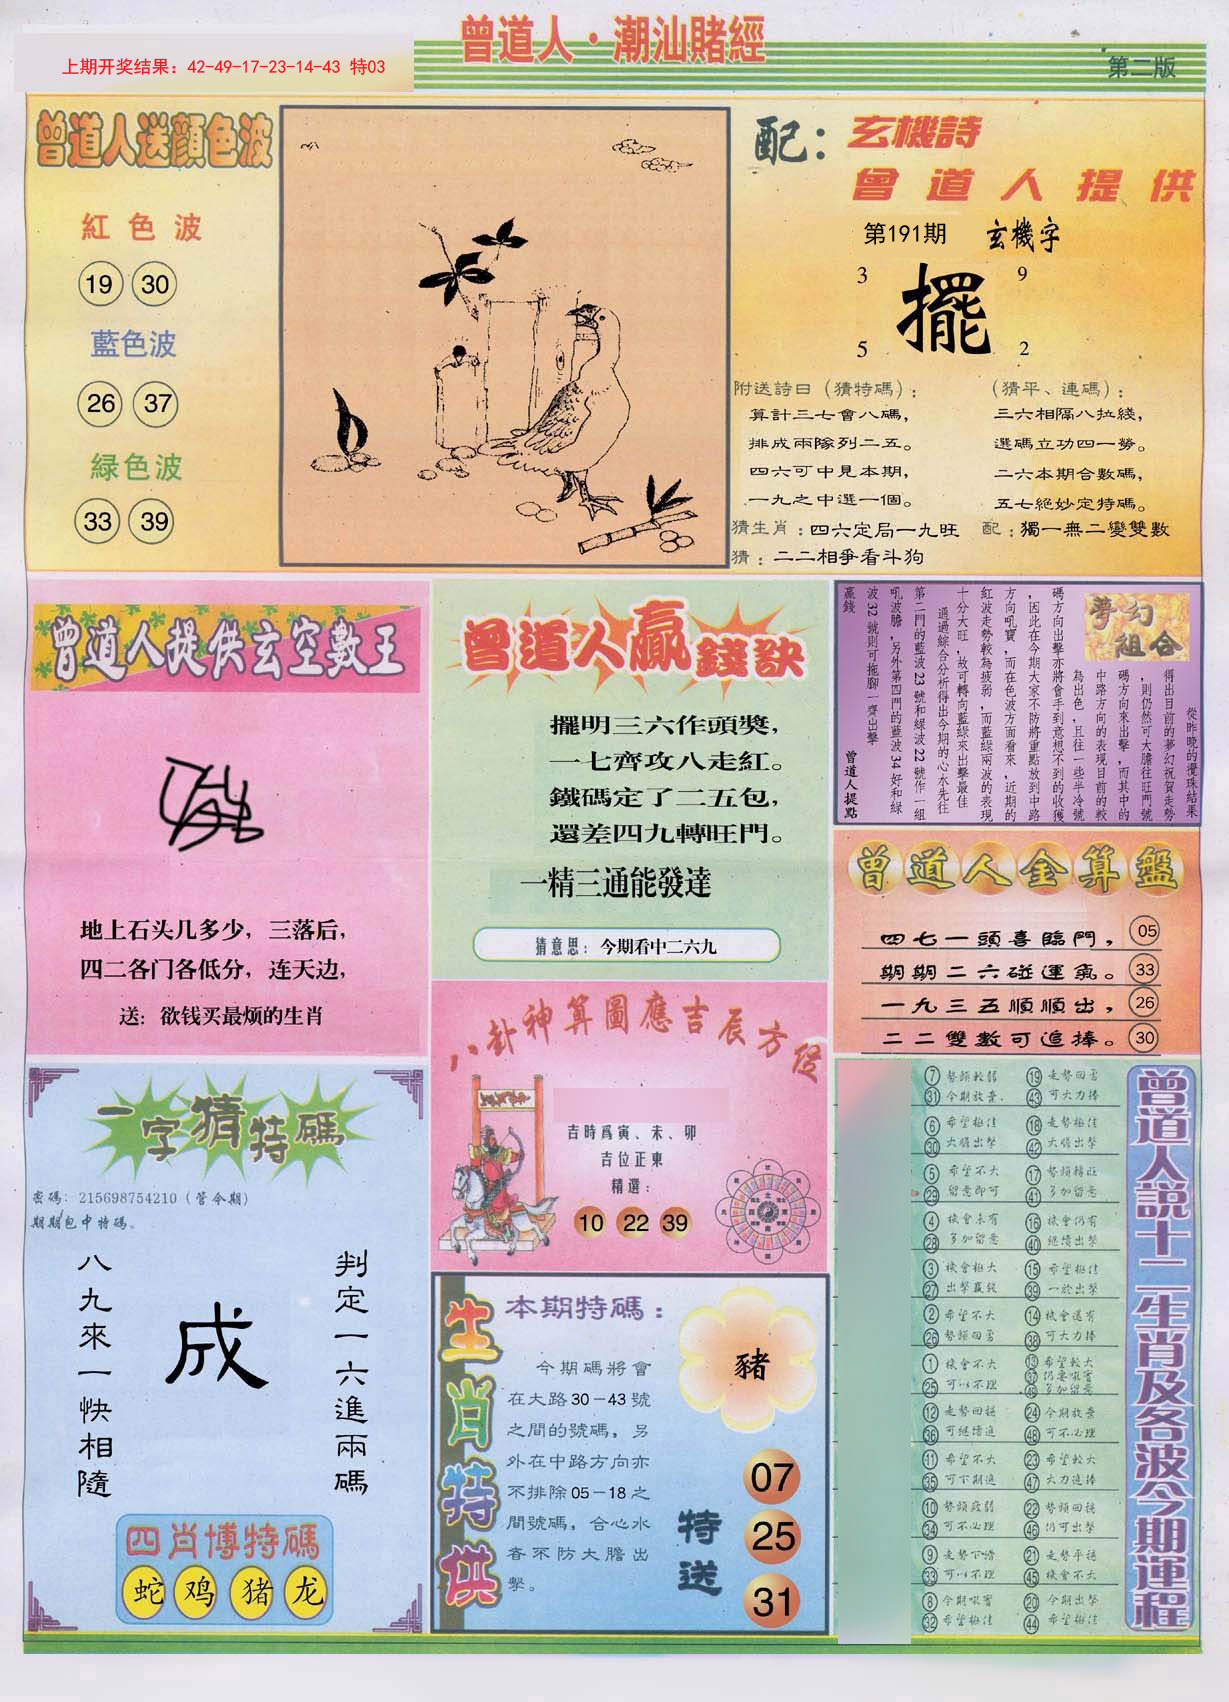 曾道人·潮汕賭經
上期开奖结果：42-49-17-23-14-43 特03
第二版
曾道人送顏色波
紅色波
19 30
藍色波
26 37
綠色波
33 39
配：玄機詩
曾道人提供
第191期 玄機字
3 9
擺
5 2
附送詩曰（猜特碼）：
算計三七會八碼，
排成兩隊列二五。
四六可中見本期，
一九之中選一個。
（猜平、連碼）：
三六相隔八拉綫，
選碼立功四一勞。
二六本期合數碼，
五七絕妙定特碼。
猜生肖：四六定局一九旺 配：獨一無二變雙數
猜：二二相爭看斗狗
曾道人提供玄空數王
地上石头几多少，三落后，
四二各门各低分，连天边，
送：欲钱买最烦的生肖
曾道人贏錢訣
擺明三六作頭獎，
一七齊攻八走紅。
鐵碼定了二五包，
還差四九轉旺門。
一精三通能發達
猜意思：今期看中二六九
夢幻組合
從昨晚的攪珠結果
得出目前的夢幻祝賀走勢
，則仍然可大膽往旺門號
碼方向來出擊，而其中的
中路方向的表現目前的較
為出色，且往一些半冷號
碼方向出擊亦將會手到意想不到的收獲
，因此在今期大家不防將重點放到中路
方向吼寶，而在色波方面看來，近期的
紅波走勢較為疲弱，而藍綠兩波的表現
十分大旺，故可轉向藍綠來出擊最佳
通過綜合分析得出今期的心水先往
第二門的藍波23號和綠波22號作一組
吼波膽，另外第四門的藍波34好和綠
波32號則可拖腳一齊出擊
贏錢
曾道人提點
曾道人金算盤
四七一頭喜臨門， 05
期期二六碰運氣。 33
一九三五順順出， 26
二二雙數可追捧。 30
八卦神算圖應吉辰方位
吉時爲寅、未、卯
吉位正東
精選：
10 22 39
一字猜特碼
密碼：215698754210（管令期）
期期包中特碼。
八九來一快相隨
成
判定一六進兩碼
四肖博特碼
蛇 鸡 猪 龙
生肖特供
本期特碼：
今期碼將會
在大路30－43號
之間的號碼，另
外在中路方向亦
不排除05－18之
間號碼，合心水
者不防大膽出
擊。
豬
特送
07
25
31
曾道人説十二生肖及各波今期運程
7 勢頭較弱 19 走勢回勇
31 今期放棄. 43 可大力捧
6 希望極佳 18 走勢極佳
30 大膽出擊 42 大膽出擊
5 希望不大 17 勢頭轉旺
29 留意即可 41 多加留意
4 機會未有 16 機會仍有
28 多加留意 40 繼續出擊
3 機會極大 15 希望極佳
27 出擊贏錢 39 一於出擊
2 希望不大 14 機會還有
26 勢頭回勇 38 可大力捧
1 機會不大 13 希望較大
25 可以不理 37 仍要吸實
49 多加留意
12 走勢回穩 24 今期放棄
36 可繼續追 48 可不必理
11 希望不大 23 希望較大
35 可下期追 47 大力追捧
10 勢頭疲弱 22 勢頭回穩
34 可不必理 46 仍可出擊
9 走勢下滑 21 走勢平穩
33 可以不理 45 機會不大
8 今期吸實 20 今期出擊
32 希望極佳 44 希望極佳